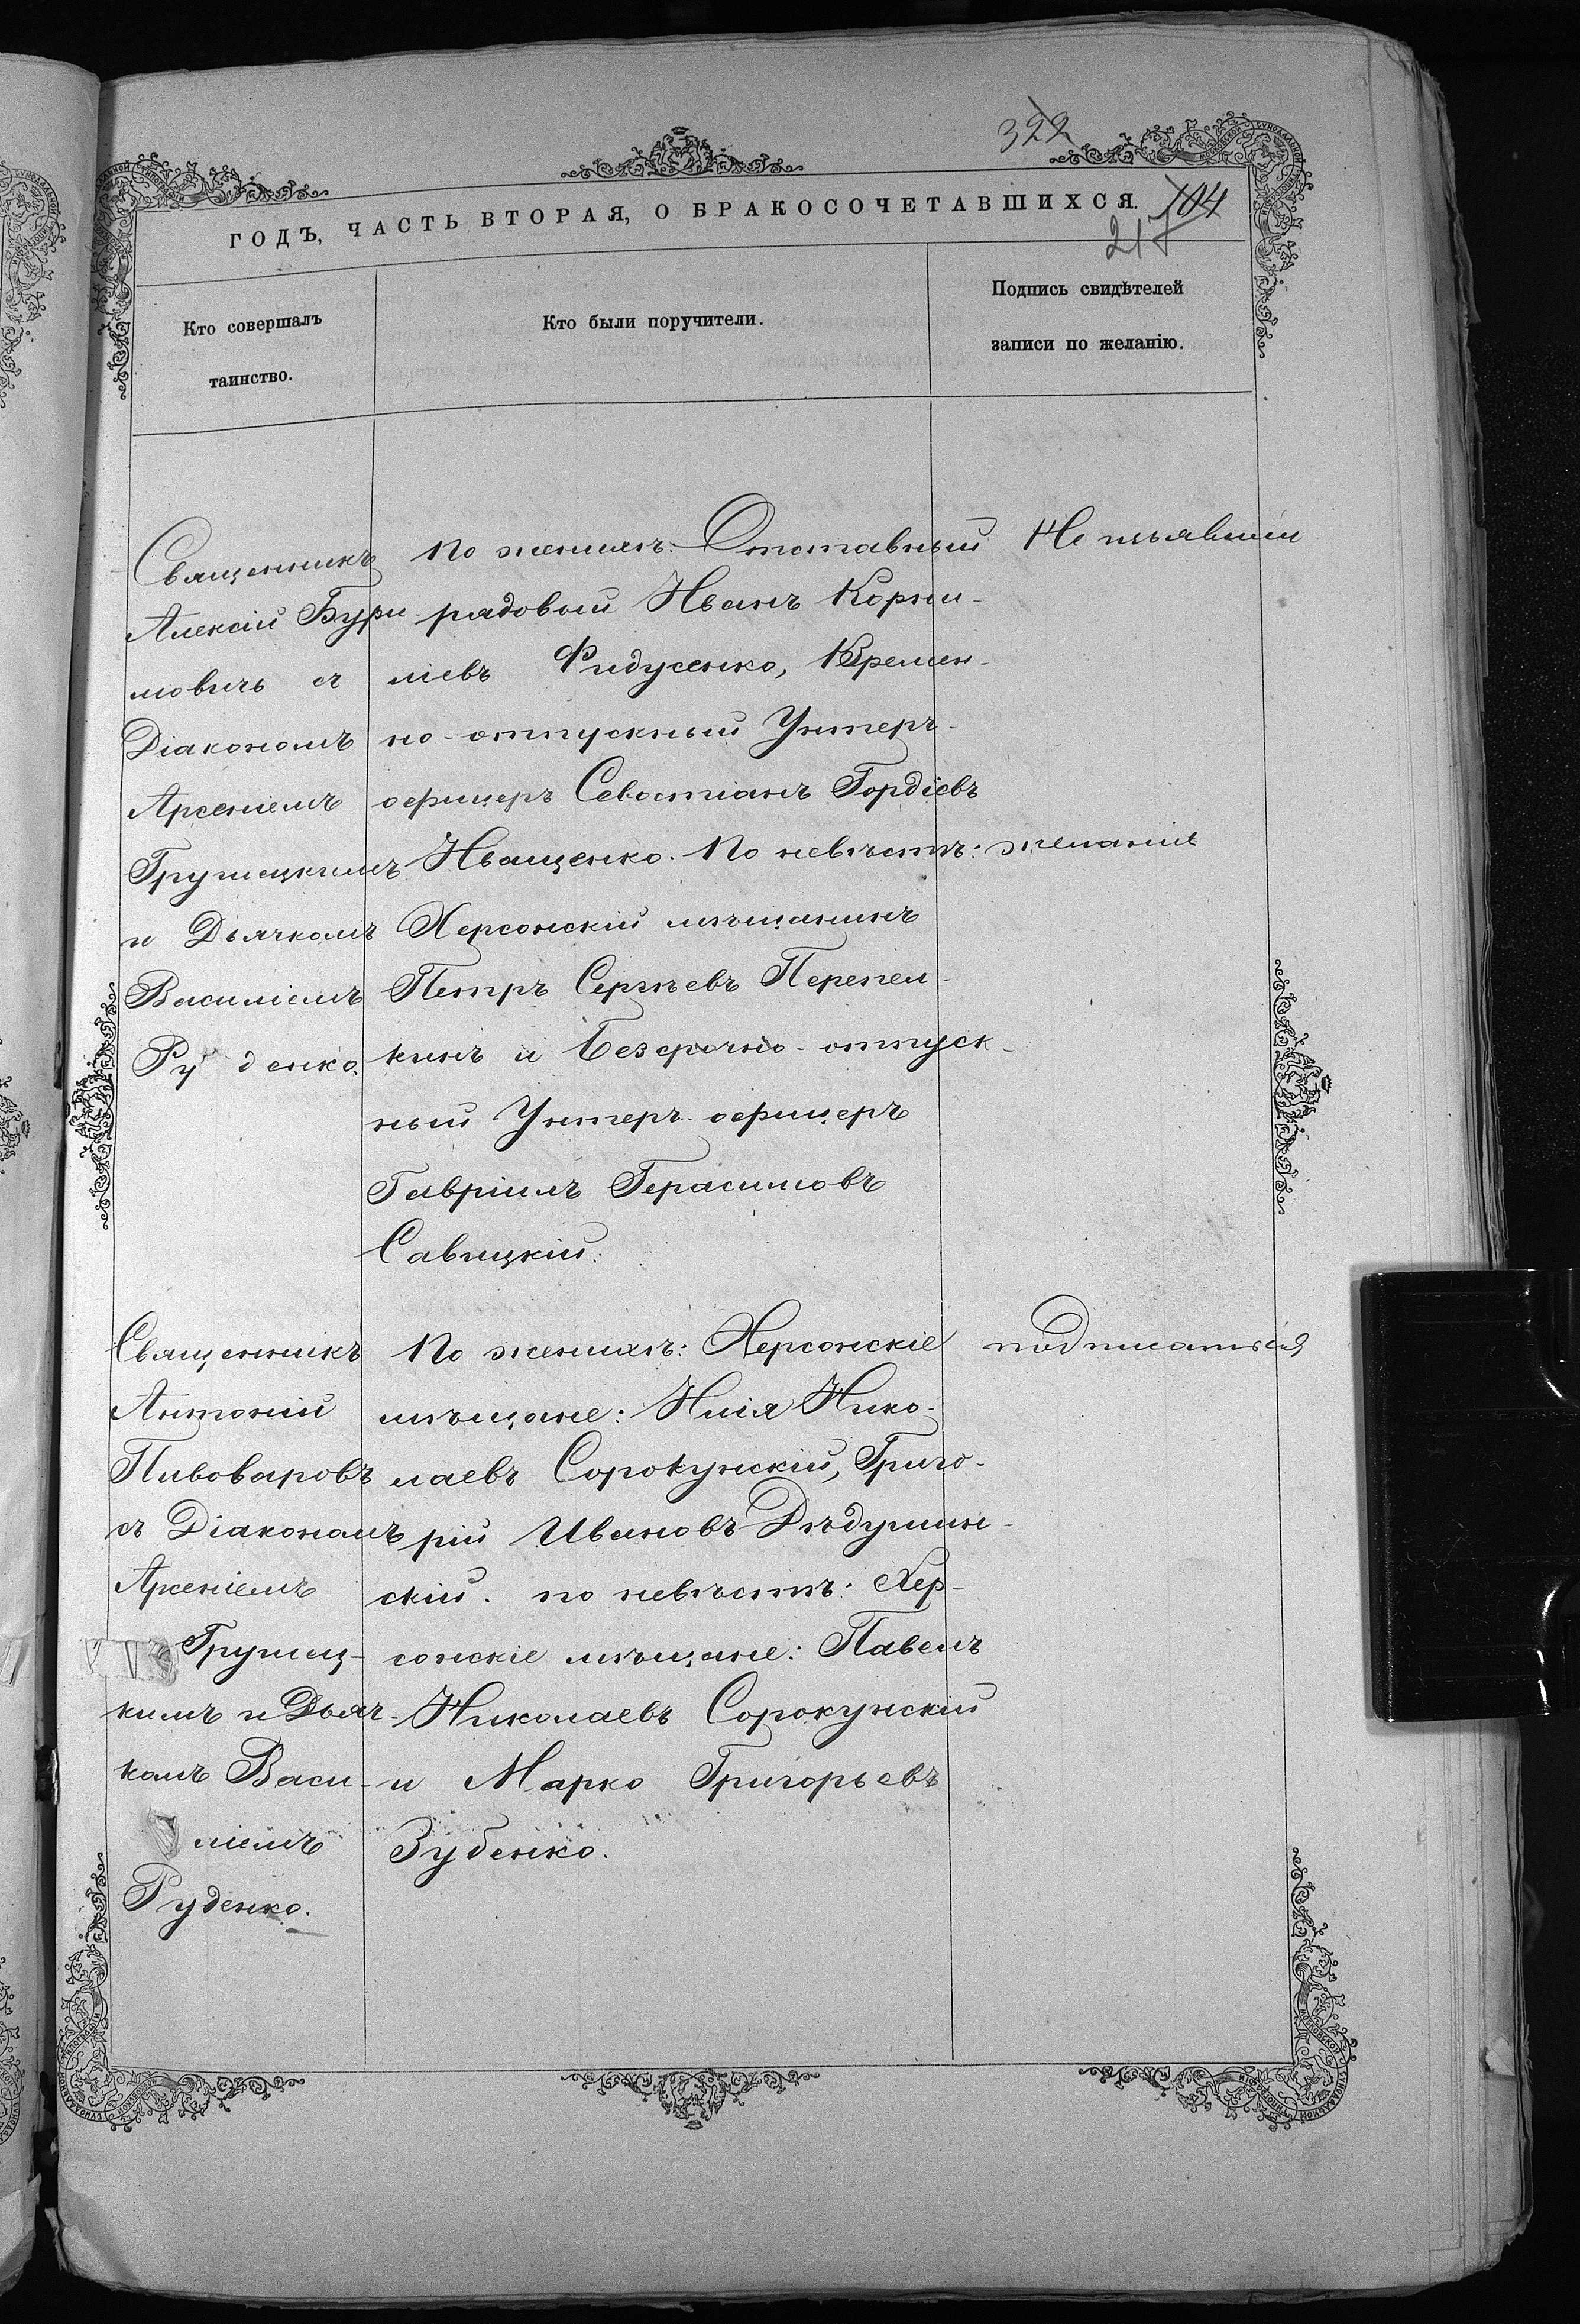 322
ГОДЪ, ЧАСТЬ ВТОРАЯ, О БРАКОСОЧЕТАВШИХСЯ. 104
217
Кто совершалъ
таинство.
Кто были поручители.
Подпись свидѣтелей
записи по желанію.
Священникъ
Алексій Бури-
мовичъ съ
Діакономъ
Арсеніемъ
Грушецкимъ
и Дьячкомъ
Василіемъ
Руденко.
По женихѣ: Отставный
рядовый Иванъ Корни-
ліевъ Фидусенко, Времен-
но-отпускный Унтеръ-
офицеръ Севастіанъ Гордіевъ
Иващенко. По невѣстѣ:
Херсонскій мѣщанинъ
Петръ Сергѣевъ Перепел-
кинъ и безсрочно-отпуск-
ный Унтеръ-офицеръ
Гавріилъ Герасимовъ
Савицкій.
Не изъявили
желанія
Священникъ
Антоній
Пивоваровъ
съ Діакономъ
Арсеніемъ
Грушец-
кимъ и Дьяч-
комъ Васи-
ліемъ
Руденко.
По женихѣ: Херсонскіе
мѣщане: Илія Нико-
лаевъ Сорокунскій, Григо-
рій Ивановъ Дѣдушин-
скій. по невѣстѣ: Хер-
сонскіе мѣщане: Павелъ
Николаевъ Сорокунскій
и Марко Григорьевъ
Зубенко.
подписаться